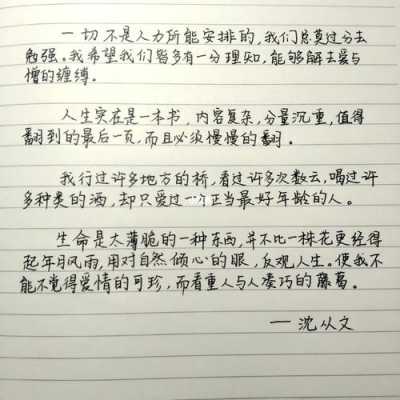 一切不是人力所能安排的，我们总莫过分去
勉强。我希望我们皆多有一分理知，能够解去爱与
憎的缠缚。
人生实在是一本书，内容复杂，分量沉重，值得
翻到的最后一页，而且必须慢慢的翻。
我行过许多地方的桥，看过许多次数云，喝过许
多种类的酒，却只爱过一个正当最好年龄的人。
生命是太薄脆的一种东西，并不比一株花更经得
起年月风雨，用对自然倾心的眼，反观人生。使我不
能不觉得爱情的可珍，而看重人与人凑巧的藤葛。
一沈从文